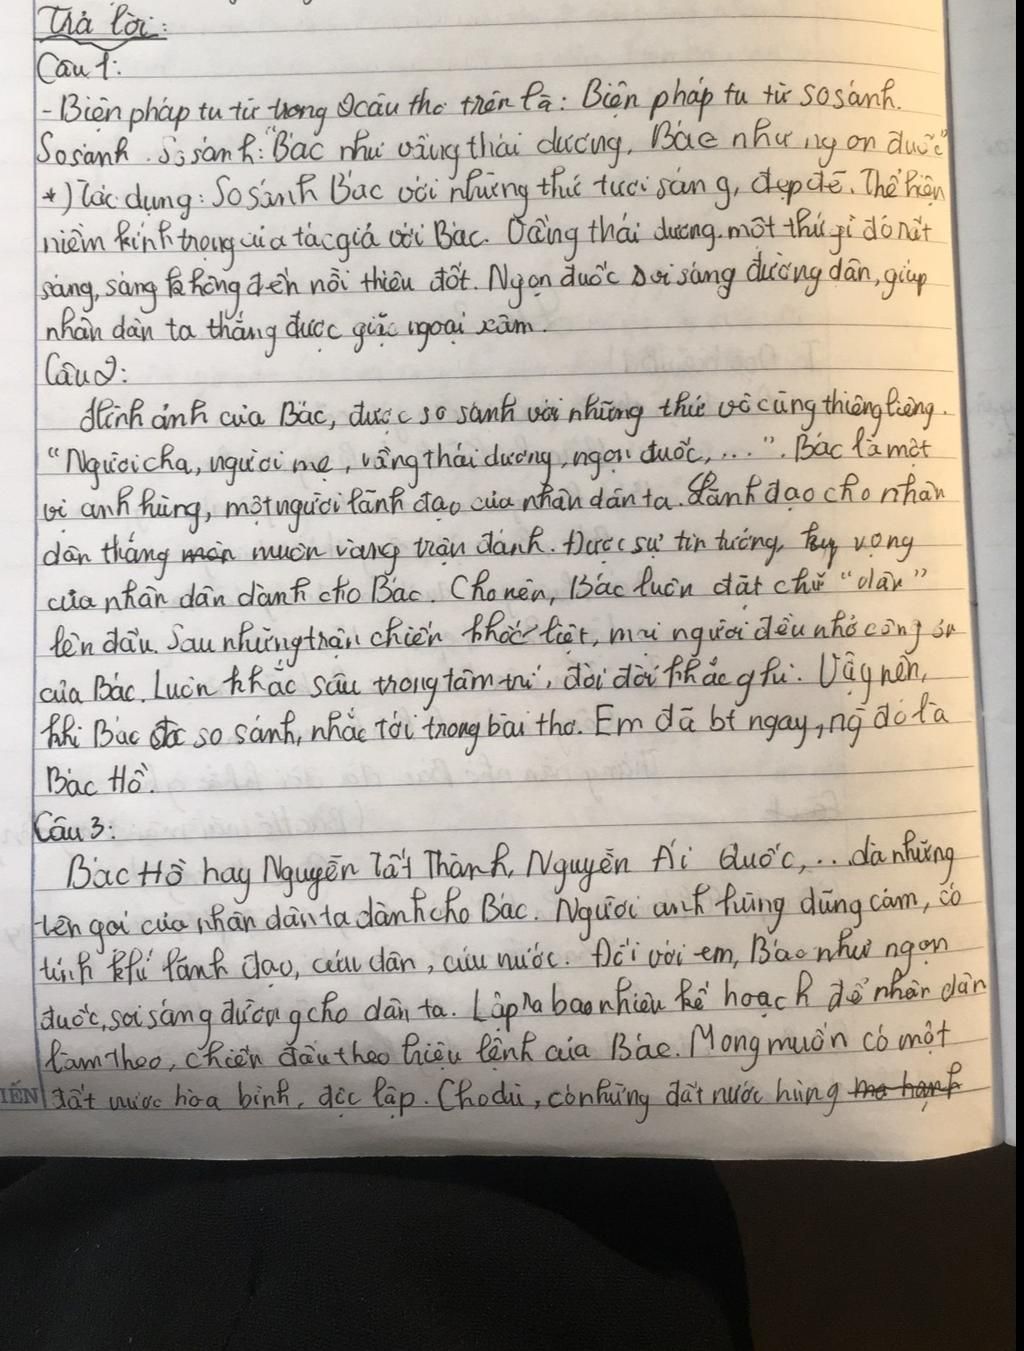 Trả lời:
Câu 1:
- Biện pháp tu từ trong 2 câu thơ trên là: Biện pháp tu từ so sánh.
So sánh. So sánh: "Bác như vầng thái dương, Bác như ngọn đuốc"
*) Tác dụng: So sánh Bác với những thứ tươi sáng, đẹp đẽ. Thể hiện
niềm kính trọng của tác giả với Bác. Vầng thái dương một thứ gì đó rất
sáng, sáng không đến nỗi thiêu đốt. Ngọn đuốc soi sáng đường dân, giúp
nhân dân ta thắng được giặc ngoại xâm.
Câu 2:
Hình ảnh của Bác, được so sánh với những thứ vô cùng thiêng liêng.
"Người cha, người mẹ, vầng thái dương, ngọn đuốc,...". Bác là một
vị anh hùng, một người lãnh đạo của nhân dân ta. Lãnh đạo cho nhân
dân thắng muôn vàng trận đánh. Được sự tin tưởng, kỳ vọng
của nhân dân dành cho Bác. Cho nên, Bác luôn đặt chữ "dân"
lên đầu. Sau những trận chiến khốc liệt, mọi người đều nhớ công ơn
của Bác. Luôn khắc sâu trong tâm trí, đời đời khắc ghi. Vậy nên,
khi Bác đc so sánh, nhắc tới trong bài thơ. Em đã bt ngay, ng đó là
Bác Hồ.
Câu 3:
Bác Hồ hay Nguyễn Tất Thành, Nguyễn Ái Quốc,... là những
tên gọi của nhân dân ta dành cho Bác. Người anh hùng dũng cảm, có
tính khí lãnh đạo, cứu dân, cứu nước. Đối với em, Bác như ngọn
đuốc, soi sáng đường cho dân ta. Lập ra bao nhiêu kế hoạch để nhân dân
làm theo, chiến đấu theo hiệu lệnh của Bác. Mong muốn có một
IẾN đất nước hòa bình, độc lập. Cho dù, có những đất nước hùng